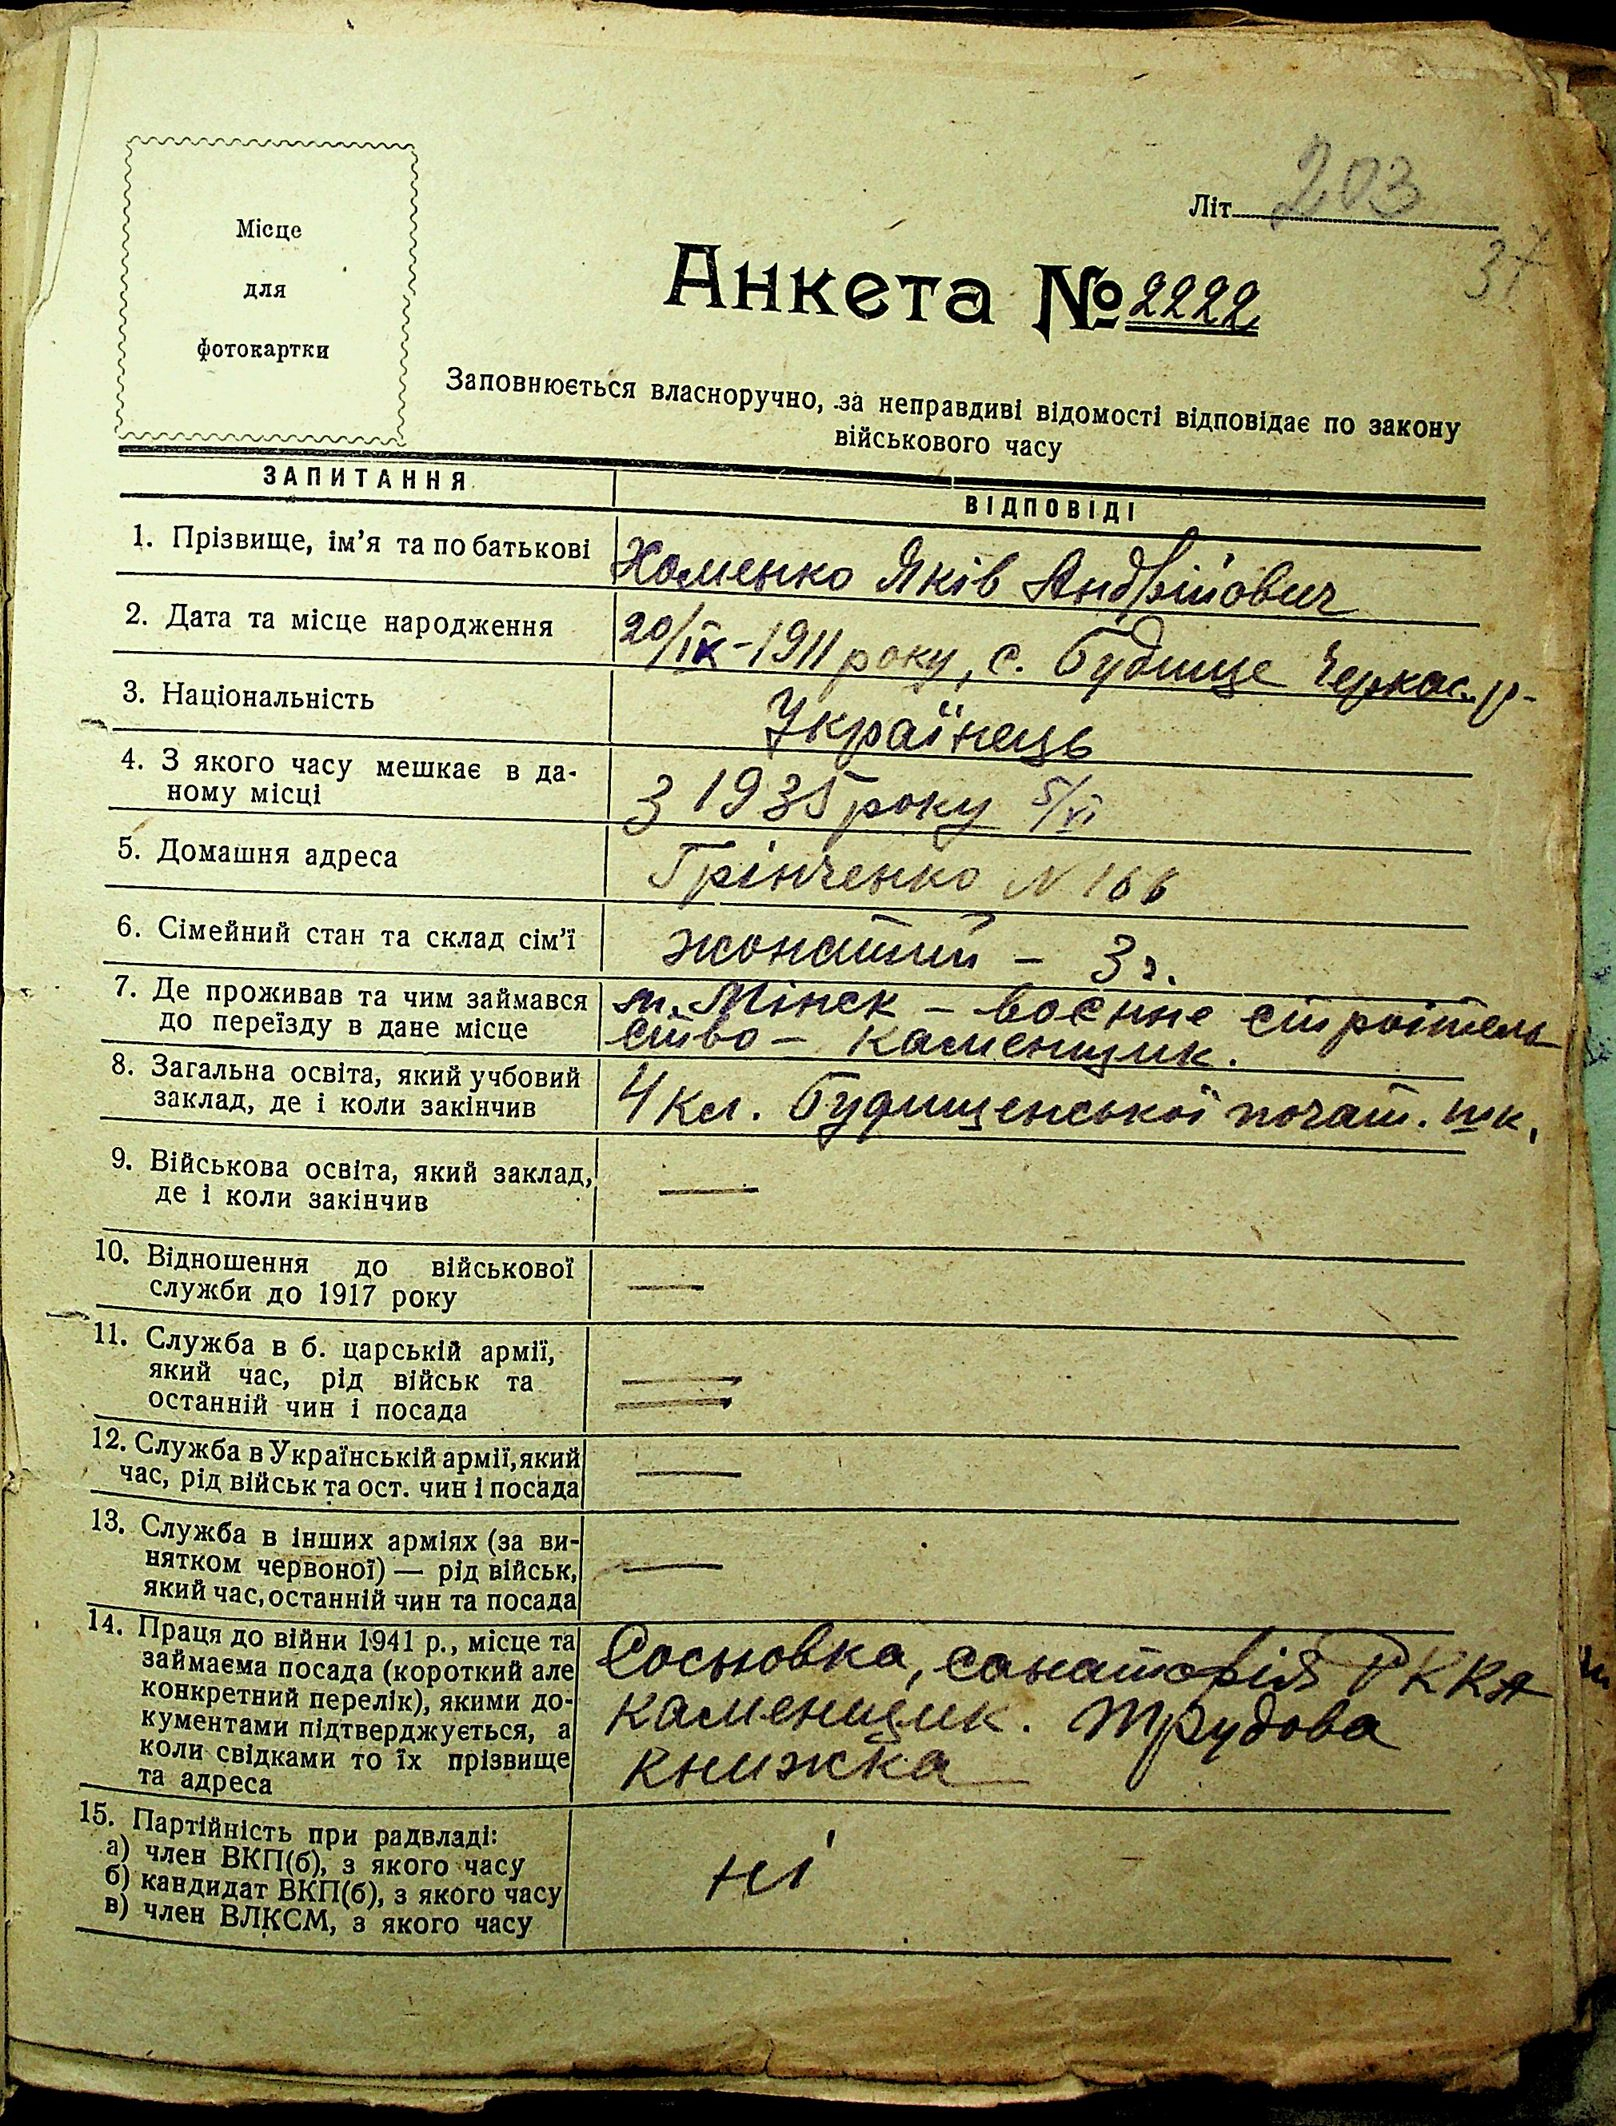 Місце
для
фотокартки
Літ. 203
37
Анкета № 2222
Заповнюється власноручно, за неправдиві відомості відповідає по закону
військового часу
ЗАПИТАННЯ
ВІДПОВІДІ
1. Прізвище, ім'я та по батькові
Хоменко Яків Андрійович
2. Дата та місце народження
20/IX-1911 року, с. Будище Черкас. р-
3. Національність
Українець
4. З якого часу мешкає в да-
ному місці
З 1935 року 5/VI
5. Домашня адреса
Грінченко N 166
6. Сімейний стан та склад сім'ї
жонатий – 3 ч.
7. Де проживав та чим займався
до переїзду в дане місце
м. Мінск – воєнне строітель
ство – каменщик.
8. Загальна освіта, який учбовий
заклад, де і коли закінчив
4 кл. Будищенської почат. шк.
9. Військова освіта, який заклад,
де і коли закінчив
—
10. Відношення до військової
служби до 1917 року
—
11. Служба в б. царській армії,
який час, рід військ та
останній чин і посада
—
12. Служба в Українській армії, який
час, рід військ та ост. чин і посада
—
13. Служба в інших арміях (за ви-
нятком червоної) — рід військ,
який час, останній чин та посада
—
14. Праця до війни 1941 р., місце та
займаєма посада (короткий але
конкретний перелік), якими до-
кументами підтверджується, а
коли свідками то їх прізвище
та адреса
Сосновка, санаторій РККА
каменщик. Трудова
книжка
15. Партійність при радвладі:
а) член ВКП(б), з якого часу
б) кандидат ВКП(б), з якого часу
в) член ВЛКСМ, з якого часу
ні